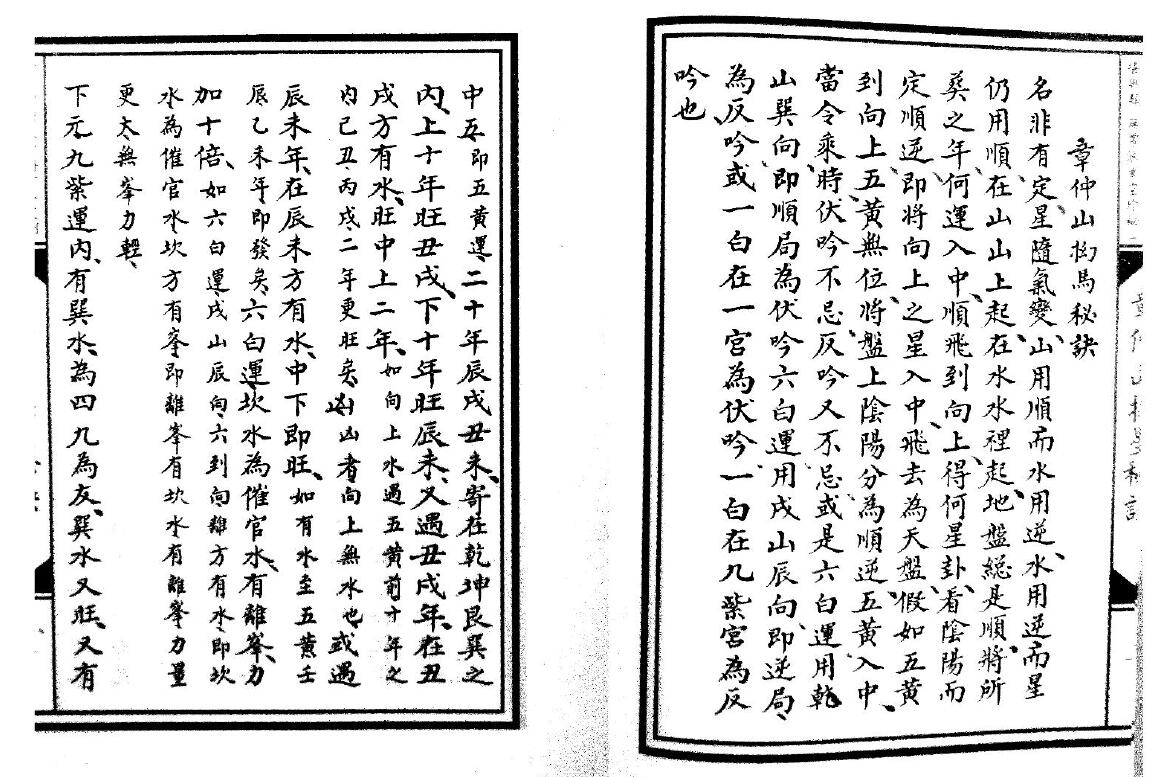 章仲山拗馬秘訣
名非有定星隨氣變、山用順而水用逆、水用逆而星
仍用順在山山上起、在水水裡起、地盤總是順、將所
葬之年何運入中、順飛到向上、得何星卦、看陰陽而
定順逆、即將向上之星入中、飛去為天盤、假如五黃
到向上五黃無位、將盤上陰陽分為順逆、五黃入中、
當令乘時、伏吟不忌、反吟又不忌、或是六白運用乾
山巽向、即順局為伏吟六白運用戌山辰向、即逆局、
為反吟或一白在一宮為伏吟一白在九紫宮為反
吟也、
中五、即五黃運、二十年辰戌丑未、寄在乾坤艮巽之
內、上十年旺丑戌、下十年旺辰未、又遇丑戌年、在丑
戌方有水、旺中上二年、如向上水遇五黃前十年之
內己丑、丙戌二年更旺矣、凶者向上無水也、或遇
辰未年、在辰未方有水、中下即旺、如有水至五黃壬
辰乙未年、即發矣、六白運、坎水為催官水、有離峯、力
加十倍、如六白運、戌山辰向、六到向、離方有水、即坎
水為催官水、坎方有峯、即離峯有坎水、有離峯力量
更大無峯力輕、
下元九紫運內、有巽水、為四九為友、巽水又旺、又有